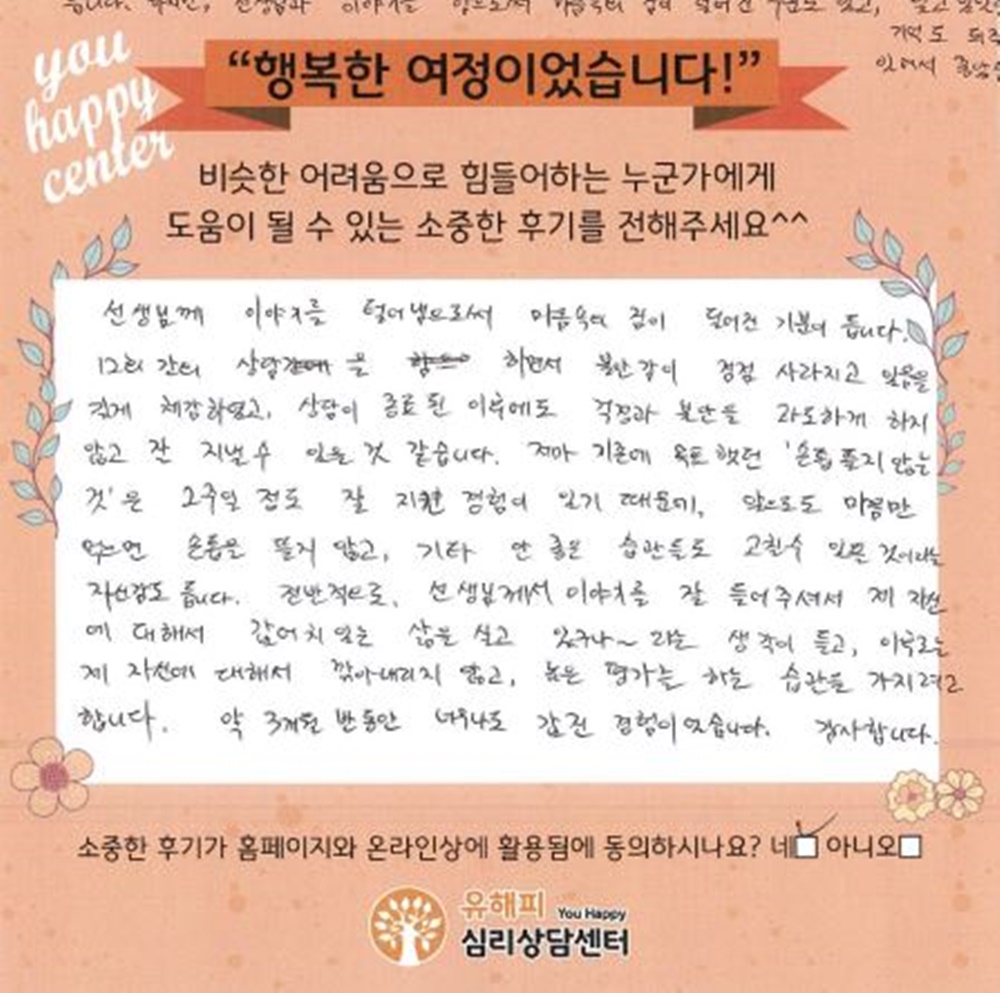 습니다. 하지만, 선생님과 이야기를 함으로써 마음속의 짐이 덜어진 부분도 있고,
기억도 되
있어서 좋았
you
happy
center
“행복한 여정이었습니다!”
비슷한 어려움으로 힘들어하는 누군가에게
도움이 될 수 있는 소중한 후기를 전해주세요^^
선생님께 이야기를 털어냄으로써 마음속의 짐이 덜어진 기분이 듭니다.
12회 간의 상담을 하면서 불안감이 점점 사라지고 있음을
크게 체감하였고, 상담이 종료된 이후에도 걱정과 불안을 과도하게 하지
않고 잘 지낼 수 있을 것 같습니다. 저마 기존에 목표했던 '손톱 뜯지 않는
것'은 2주일 정도 잘 지킨 경험이 있기 때문에, 앞으로도 마음만
먹으면 손톱을 뜯지 않고, 기타 안 좋은 습관들도 고칠수 있을 것이라는
자신감도 듭니다. 전반적으로, 선생님께서 이야기를 잘 들어주셔서 제 자신
에 대해서 값어치 있는 삶을 살고 있구나~ 라는 생각이 들고, 이후로는
제 자신에 대해서 깎아내리지 않고, 높은 평가는 하는 습관을 가지려고
합니다. 약 3개월 반 동안 너무나도 값진 경험이었습니다. 감사합니다.
소중한 후기가 홈페이지와 온라인상에 활용됨에 동의하시나요? 네 아니오
유해피 You Happy
심리상담센터